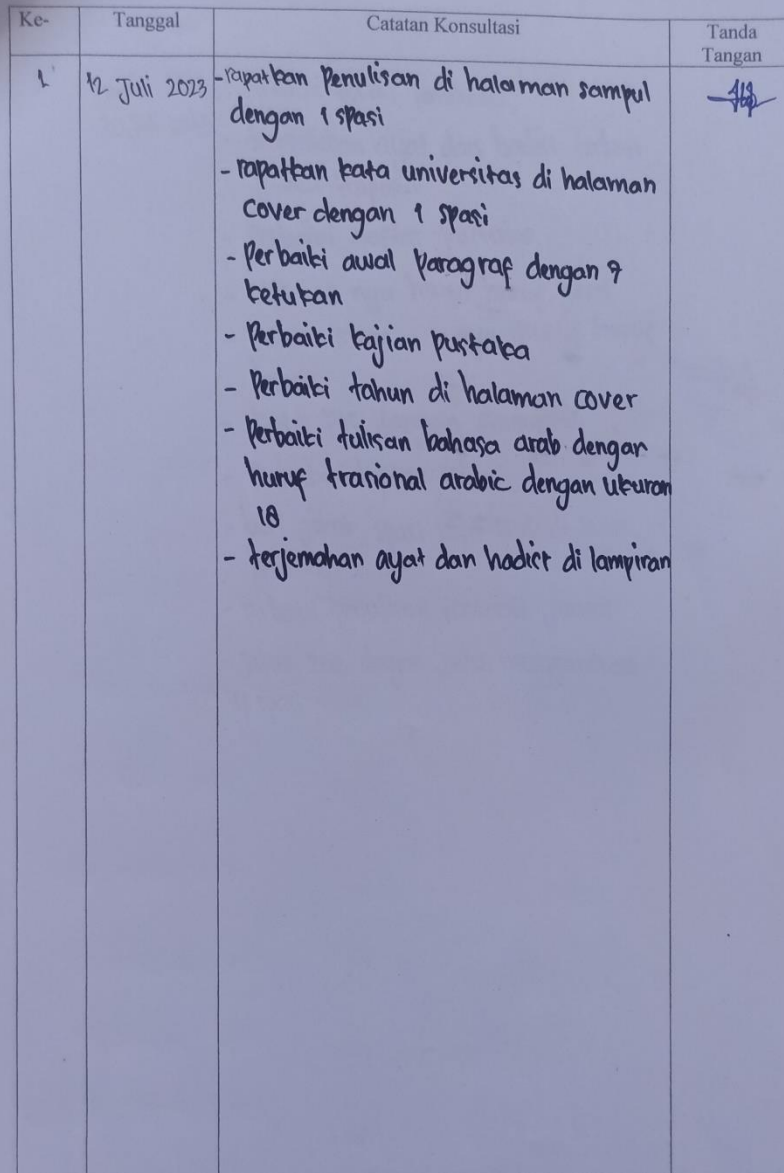 Ke- Tanggal Catatan Konsultasi Tanda
Tangan
1 12 Juli 2023 -rapatkan Penulisan di halaman sampul
dengan 1 spasi
- rapatkan kata universitas di halaman
cover dengan 1 spasi
- Perbaiki awal Paragraf dengan 7
ketukan
- Perbaiki kajian pustaka
- Perbaiki tahun di halaman cover
- Perbaiki tulisan bahasa arab dengan
huruf trasional arabic dengan ukuran
18
- terjemahan ayat dan hadict di lampiran